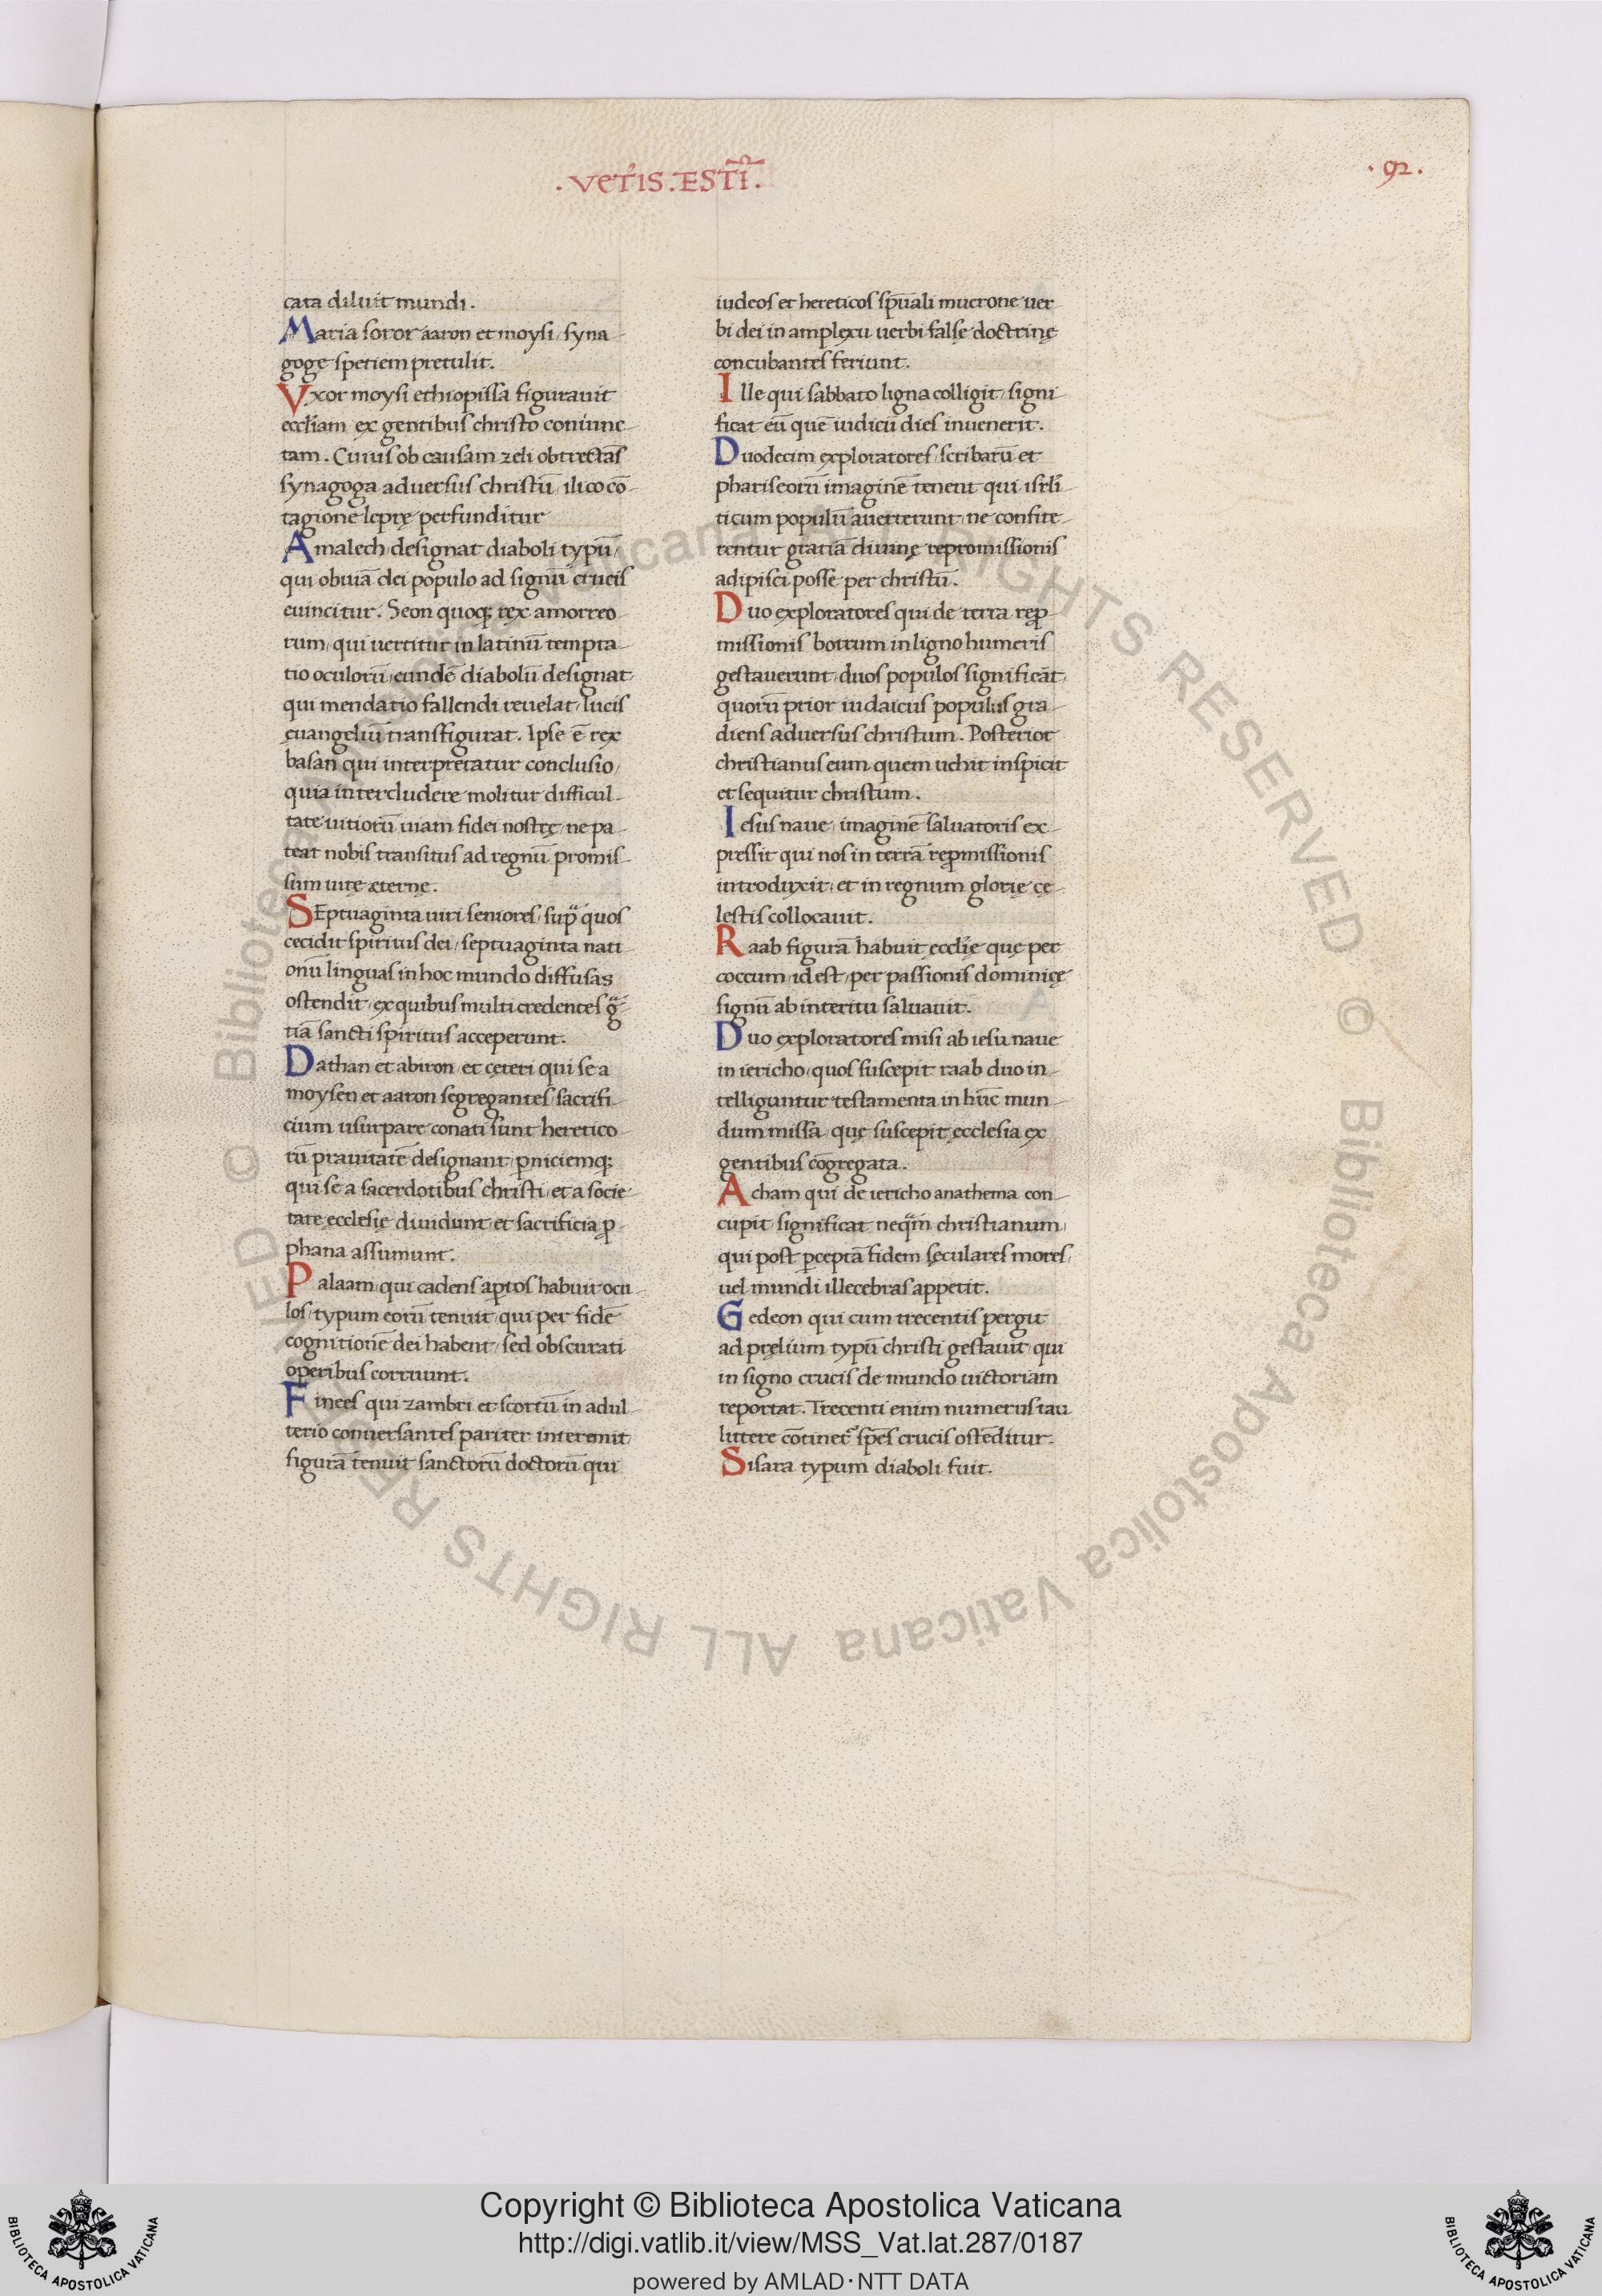 . VET'IS . ESTĪ .
. 92 .
cata diluit mundi .
Maria soror aaron et moysi / syna-
goge speciem pretulit.
Vxor moysi ethiopissa figurauit
eccl'iam ex gentibus christo coniunc-
tam . Cuius ob causam zeli obtrectās
synagoga aduersus christū / ilico cō-
tagione leprę perfunditur
Amalech / designat diaboli typū /
qui obuiā dei populo ad signū crucis
euincitur . Seon quoq; rex amorreo-
rum / qui uertitur in latinū tempta-
tio oculorū / eundē diabolū designat /
qui mendatio fallendi reuelat / lucis
ęuangeliū transfigurat . Ipse ē rex
basan qui interpretatur conclusio /
quia intercludere molitur difficul-
tate uitiorū uiam fidei nostrę / ne pa-
teat nobis transitus ad regnū promis-
sum uitę ęternę .
SEptuaginta uiri seniores / sup̄ quos
cecidit spiritus dei / septuaginta nati-
onū linguas in hoc mundo diffusas
ostendit / ex quibus multi credentes g̃-
tia sancti spiritus acceperunt .
Dathan et abiron / et cęteri qui se a
moysen et aaron segregantes / sacrifi-
cium usurpare conati sunt heretico-
rū prauitatē designant / ꝑniciemq;
qui se a sacerdotibus christi / et a socie-
tate ecclesię diuidunt / et sacrificia ꝓ-
phana assumunt .
Palaam / qui cadens aꝑtos habuit ocu-
los / typum eorū tenuit / qui per fidē
cognitionē dei habent / sed obscurati
operibus corruunt .
Finees qui zambri et scortū in adul-
terio conuersantes pariter interemit /
figurā tenuit sanctorū doctorū qui
iudeos et hereticos sp̄uali mucrone uer
bi dei in amplexu uerbi falsę doctrinę
concubantes feriunt .
Ille qui sabbato ligna colligit / signi-
ficat eū quē iudicii dies inuenerit .
Duodecim exploratores / scribarū et
phariseorū imaginē tenent qui isrl'i-
ticum populū auerterunt / ne confite-
rentur gratiā diuinę repromissionis
adipisci posse per christū .
Duo exploratores qui de terra reꝓ-
missionis botrum in ligno humeris
gestauerunt / duos populos significāt /
quorū prior iudaicus populus gra-
diens aduersus christum . Posterior
christianus eum quem uehit inspicit
et sequitur christum .
Iesus naue / imaginē saluatoris ex-
pressit qui nos in terrā reꝓmissionis
introduxit / et in regnum glorię cę-
lestis collocauit .
Raab figurā habuit eccl'ię quę per
coccum / id est / per passionis dominicę
signū ab interitu saluauit .
Duo exploratores misi ab iesu naue
in iericho / quos suscepit raab duo in-
telliguntur testamenta in hūc mun-
dum missa / quę suscepit ecclesia ex
gentibus cōgregata .
Acham qui de iericho anathema con-
cupit / significat neq̃m christianum /
qui post ꝑceptā fidem sęculares mores /
uel mundi illecebras appetit .
Gedeon qui cum trecentis pergit
ad pręlium typū christi gestauit / qui
in signo crucis de mundo uictoriam
reportat . Trecenti enim numerus tau
littere cōtinet' sp̄es crucis ostēditur .
Sisara typum diaboli fuit .
© Biblioteca Apostolica Vaticana ALL RIGHTS RESERVED © Biblioteca Apostolica Vaticana ALL RIGHTS RESERVED
Copyright © Biblioteca Apostolica Vaticana
http://digi.vatlib.it/view/MSS_Vat.lat.287/0187
powered by AMLAD·NTT DATA
BIBLIOTECA APOSTOLICA VATICANA
BIBLIOTECA APOSTOLICA VATICANA